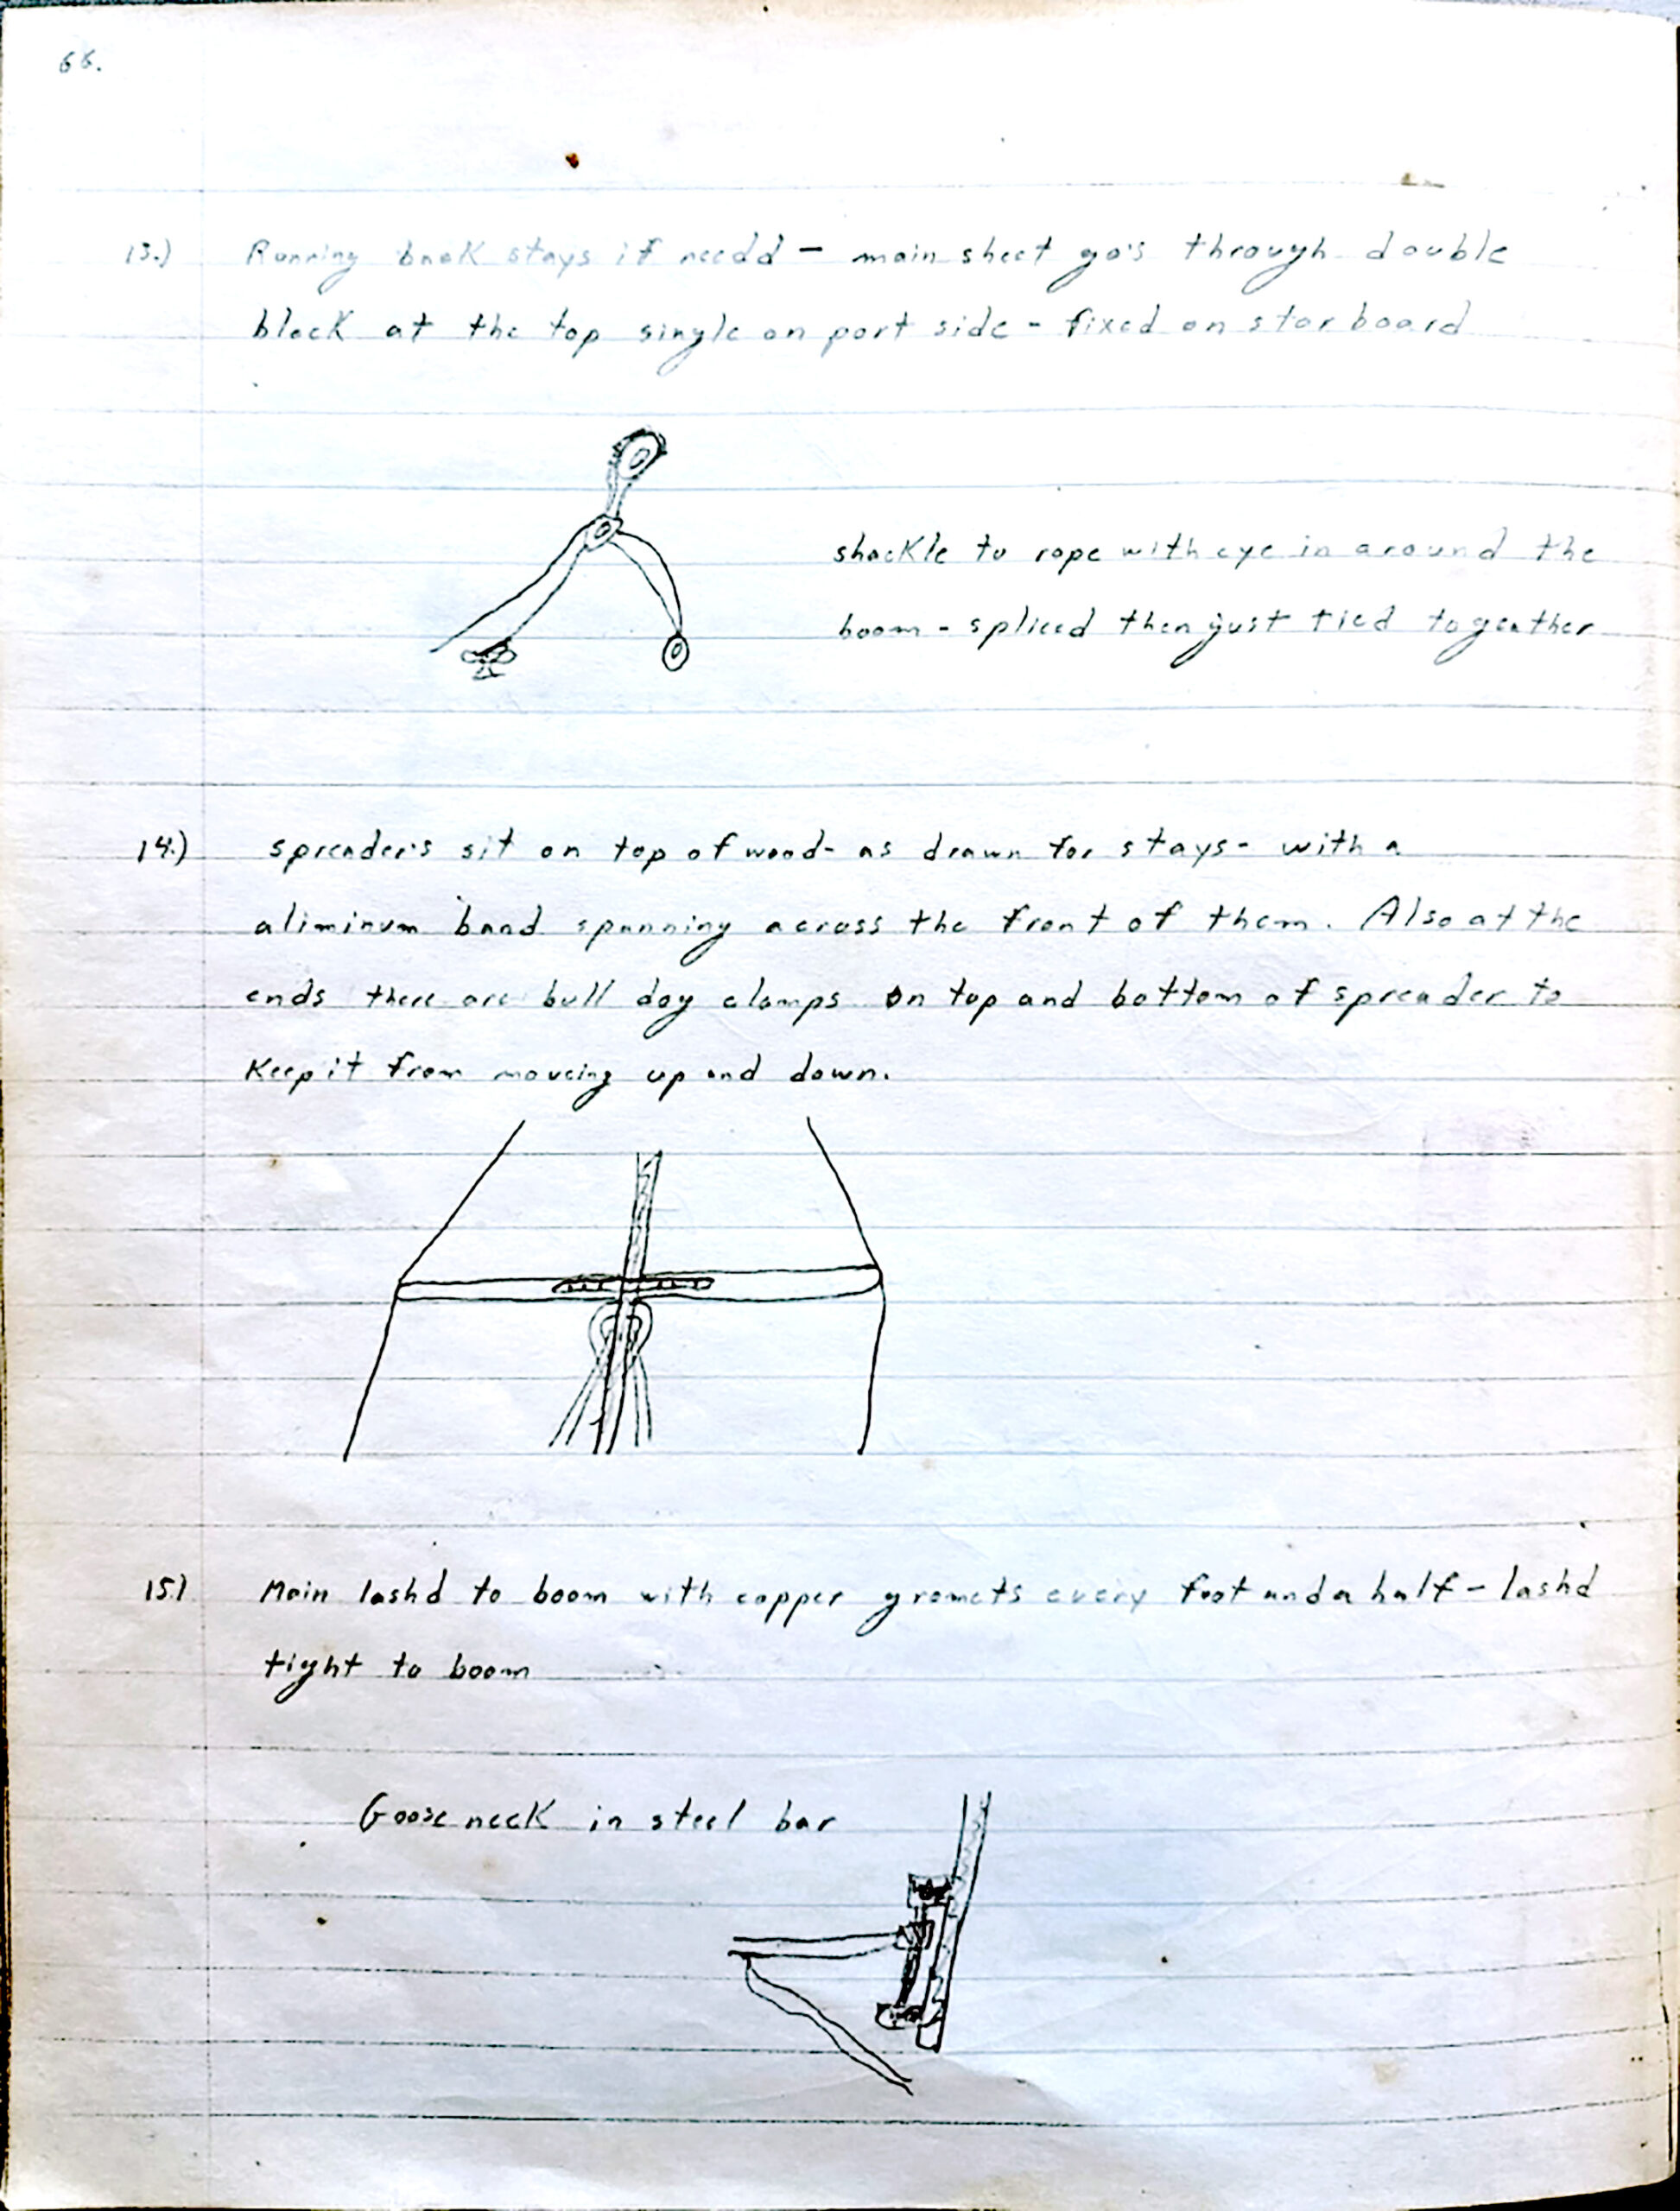 66.
13.) Running back stays if needd - main sheet go's through double
block at the top single on port side - fixed on starboard
shackle to rope with eye in around the
boom - spliced then just tied togeather
14.) spreader's sit on top of wood - as drawn for stays - with a
aliminum band spanning across the front of them. Also at the
ends there are bull dog clamps on top and bottom of spreader to
Keep it from moveing up and down.
15.) Main lashd to boom with copper gromets every foot and a half - lashd
tight to boom
Goose neck in steel bar